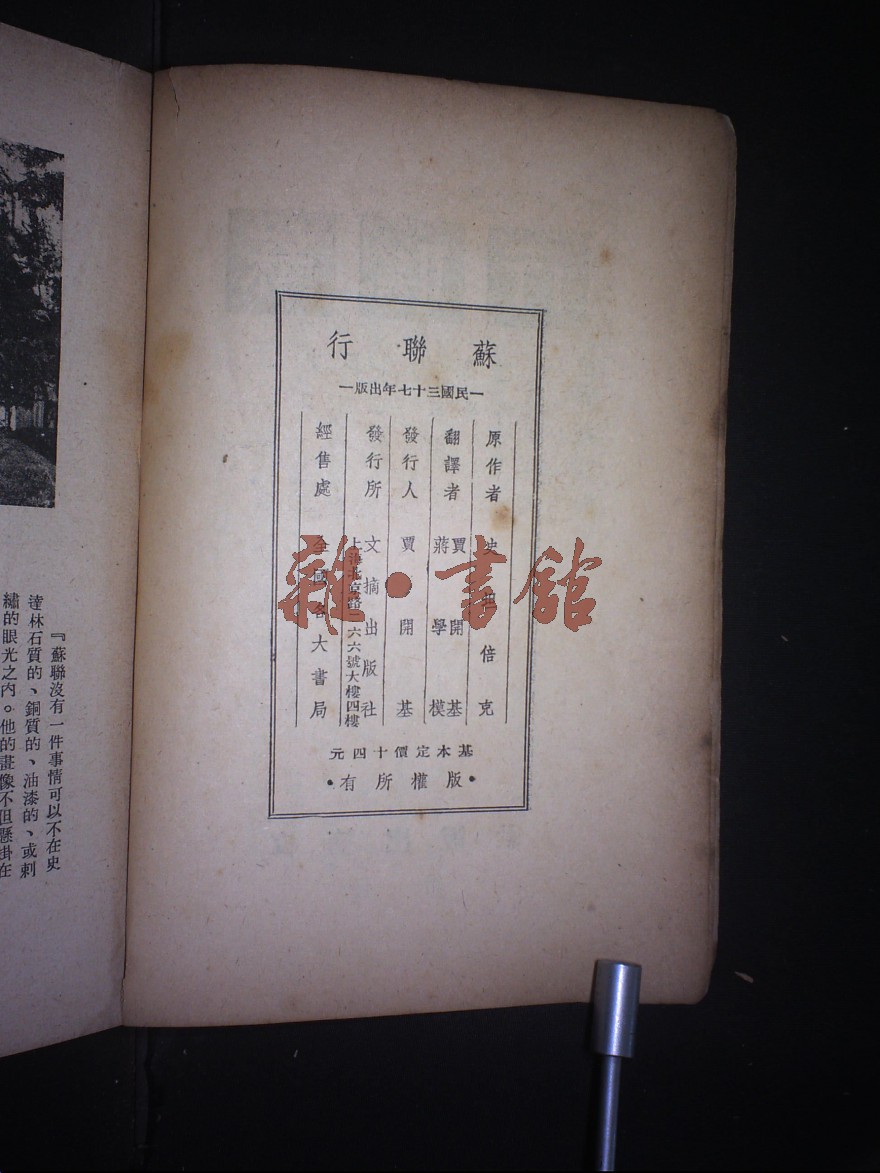 蘇聯行
一民國三十七年出版一
原作者 史坦倍克
翻譯者 賈開基
蔣學模
發行人 賈開基
發行所 文摘出版社
上海北京路二六六號大樓四樓
經售處 全國各大書局
基本定價十四元
•版權所有•
雜•書館
『蘇聯沒有一件事情可以不在史
達林石質的、銅質的、油漆的、或刺
繡的眼光之內。他的畫像不但懸掛在